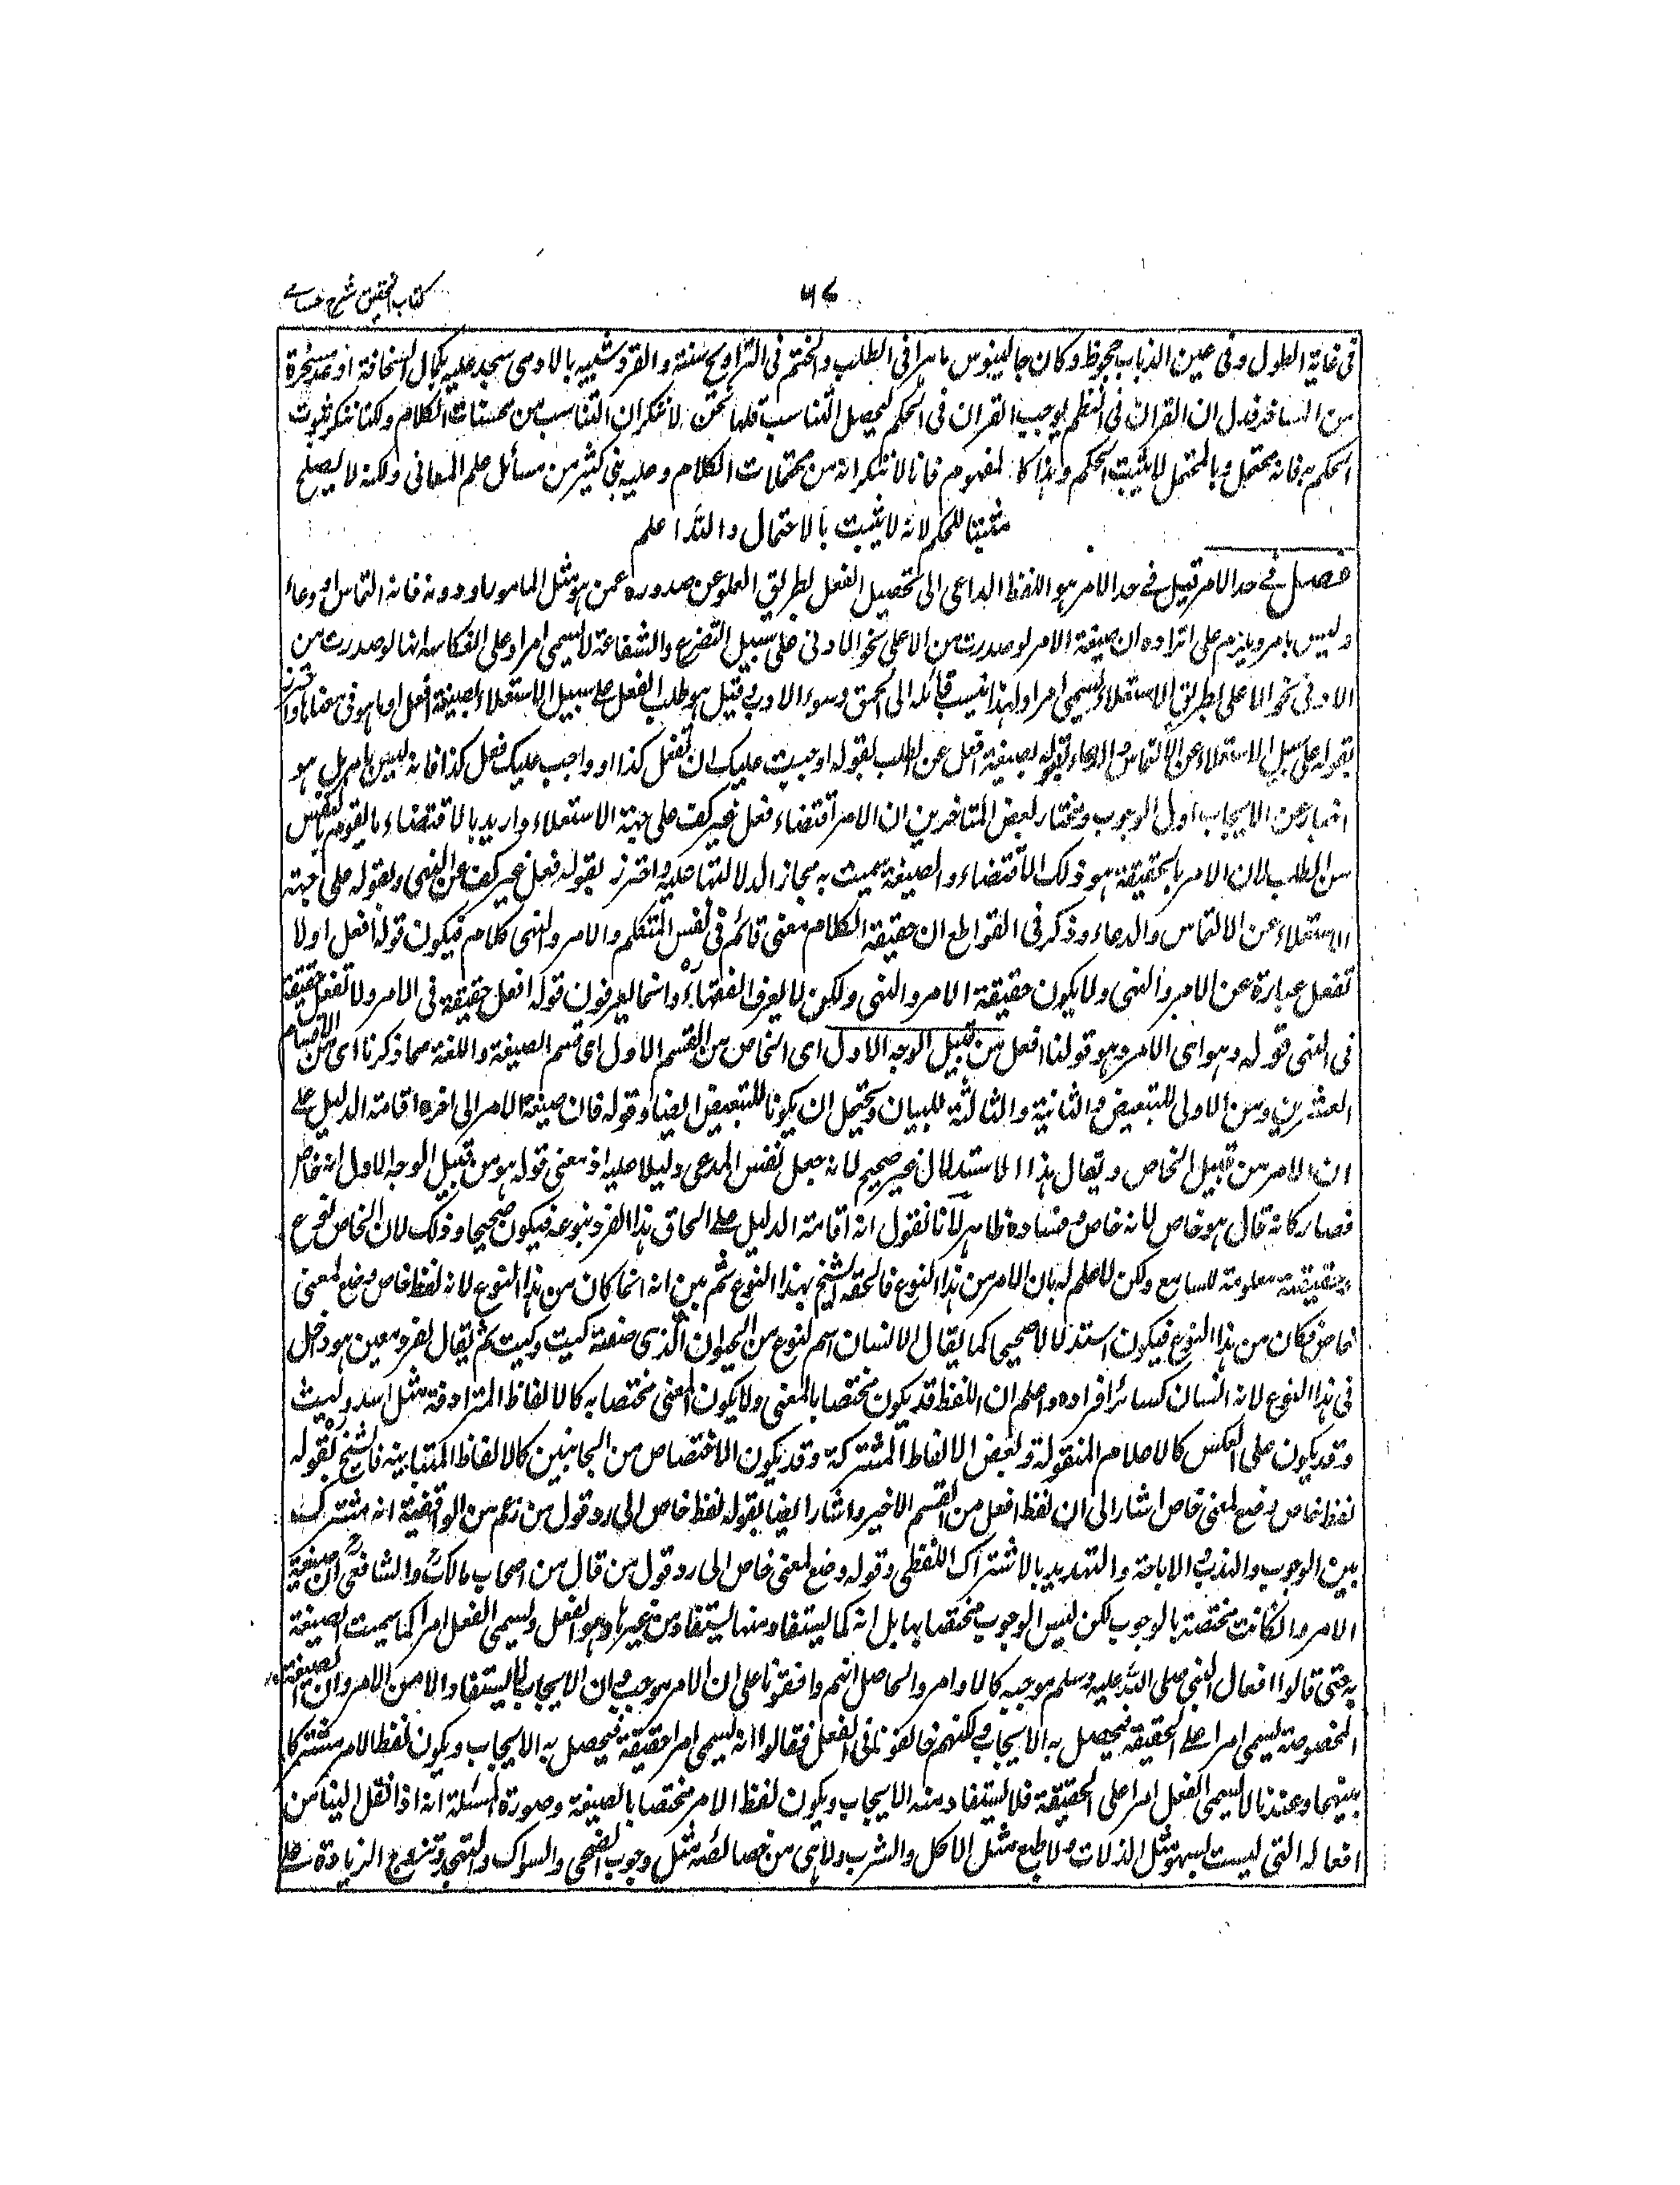 كتاب التحقيق شرح حسامي
٥٦
فى غاية الطول وفى عين الذباب جحوظ وكان جالينوس ماهرا فى الطب والختم فى التراويح سنة والقرد شبيه بالادمى سجد عليه بكمال السخافة او عد مسخرة
من المساخر فدل ان القران فى النظم يوجب القران فى الحكم ليحصل التناسب قلنا نحن لا ننكر ان التناسب من محسنات الكلام ولكنا ننكر ثبوت
الحكم به فانه محتمل وبالمحتمل لا يثبت الحكم وهذا كالمفهوم فانا لا ننكر انه من محتملات الكلام وعليه بنى كثير من مسائل علم المعانى ولكنه لا يصلح
مثبتا للحكم لانه لا يثبت بالاحتمال والله اعلم
فصل فى حد الامر قيل فى حد الامر هو اللفظ الداعى الى تحصيل الفعل بطريق العلو عن صدوره عمن هو مثل المامور او دونه فانه التماس او دعاء
وليس بامر ويلزم على اطراده ان صيغة الامر لو صدرت من الاعلى نحو الادنى على سبيل التضرع والشفاعة لا يسمى امرا وعلى انعكاسه انها لو صدرت من
الادنى نحو الاعلى بطريق الاستعلاء يسمى امرا ولهذا ينسب قائله الى الحمق وسوء الادب وقيل هو طلب الفعل على سبيل الاستعلاء بصيغة افعل او ما هو فى معناها واحترز
بقوله على سبيل الاستعلاء عن الالتماس والدعاء وبقوله بصيغة افعل عن الطلب بقوله اوجبت عليك ان تفعل كذا او واجب عليك فعل كذا فانه ليس بامر بل هو
اخبار عن الايجاب او الوجوب ومختار بعض المتاخرين ان الامر اقتضاء فعل غير كف على جهة الاستعلاء واريد بالاقتضاء ما يقوم بالنفس
من الطلب لان الامر بالحقيقة هو ذلك الاقتضاء والصيغة سميت به مجازا لدلالتها عليه واحترز بقوله فعل غير كف عن النهى وبقوله على جهة
الاستعلاء عن الالتماس والدعاء وذكر فى القواطع ان حقيقة الكلام معنى قائم فى نفس المتكلم والامر والنهى كلام فيكون قوله افعل او لا
تفعل عبارة عن الامر والنهى ولا يكون حقيقة الامر والنهى ولكن لا يعرف الفقهاء وانما يعرفون قوله افعل حقيقة فى الامر ولا تفعل حقيقة
فى النهى قوله وهو اى الامر وهو قولنا افعل من قبيل الوجه الاول اى الخاص من القسم الاول اى قسم الصيغة واللغة مما ذكرنا اى من الاقسام
العشرين ومن الاولى للتبعيض والثانية والثالثة للبيان ويحتمل ان يكونا للتبعيض ايضا وقوله فان صيغة الامر الى اخره اقامة الدليل على
ان الامر من قبيل الخاص ويقال هذا الاستدلال غير صحيح لانه جعل نفس المدعى دليلا عليه اذ معنى قوله هو من قبيل الوجه الاول انه خاص
فصار كانه قال هو خاص لانه خاص وفساده ظاهر لانا نقول انه اقامة الدليل على الحاق هذا الفرد بنوعه فيكون صحيحا وذلك لان الخاص نوع
حقيقته معلومة للسامع ولكن لا علم له بان الامر من هذا النوع فالحقه الشيخ بهذا النوع ثم بين انه انما كان من هذا النوع لانه لفظ خاص وضع لمعنى
خاص فكان من هذا النوع فيكون استدلالا صحيحا كما يقال الانسان اسم لنوع من الحيوان الذى صفته كيت وكيت ثم يقال لفرد معين هو دخل
فى هذا النوع لانه انسان كسائر افراده واعلم ان اللفظ قد يكون مختصا بالمعنى ولا يكون المعنى مختصا به كالالفاظ المترادفة مثل اسد وليث
وقد يكون على العكس كالاعلام المنقولة وبعض الالفاظ المشتركة وقد يكون الاختصاص من الجانبين كالالفاظ المتباينة فالشيخ بقوله
لفظ خاص وضع لمعنى خاص اشار الى ان لفظ افعل من القسم الاخير واشار ايضا بقوله لفظ خاص الى رد قول من زعم من الواقفية انه مشترك
بين الوجوب والندب والاباحة والتهديد بالاشتراك اللفظى وقوله وضع لمعنى خاص الى رد قول من قال من اصحاب مالك والشافعى ان صيغة
الامر وان كانت مختصة بالوجوب لكن ليس الوجوب مختصا بها بل انه كما يستفاد منها يستفاد من غيرها وهو الفعل ويسمى الفعل امرا كما سميت الصيغة
به حتى قالوا افعال النبى صلى الله عليه وسلم موجبة كالاوامر والحاصل انهم وافقونا على ان الامر موجب وان الايجاب لا يستفاد الا من الامر وان الصيغة
المخصوصة تسمى امرا على الحقيقة فيحصل به الايجاب ولكنهم خالفونا فى الفعل فقالوا انه يسمى امرا حقيقة فيحصل به الايجاب ويكون لفظ الامر مشتركا
بينهما وعندنا لا يسمى الفعل امرا على الحقيقة فلا يستفاد منه الايجاب ويكون لفظ الامر مختصا بالصيغة وصورة المسئلة انه اذا نقل الينا من
افعاله التى ليست بسهو مثل الزلات ولا طبع مثل الاكل والشرب ولا هى من خصائصه مثل وجوب الضحى والسواك والتهجد وتزوج الزيادة على